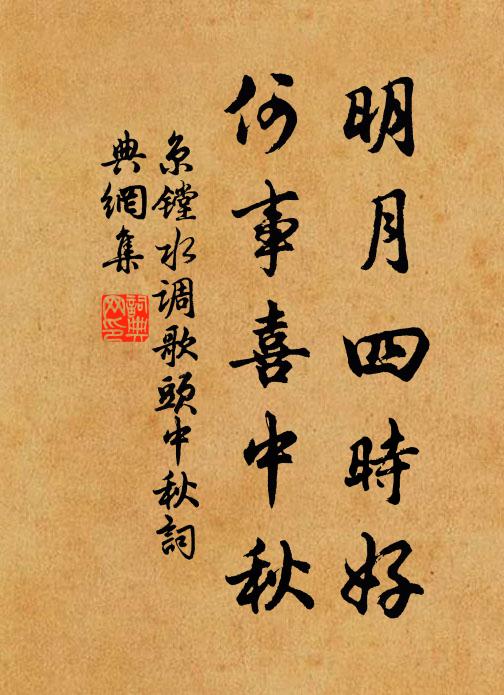 明月四時好
何事喜中秋
京鏜水调歌頭中秋詞
典網集
詞典網印